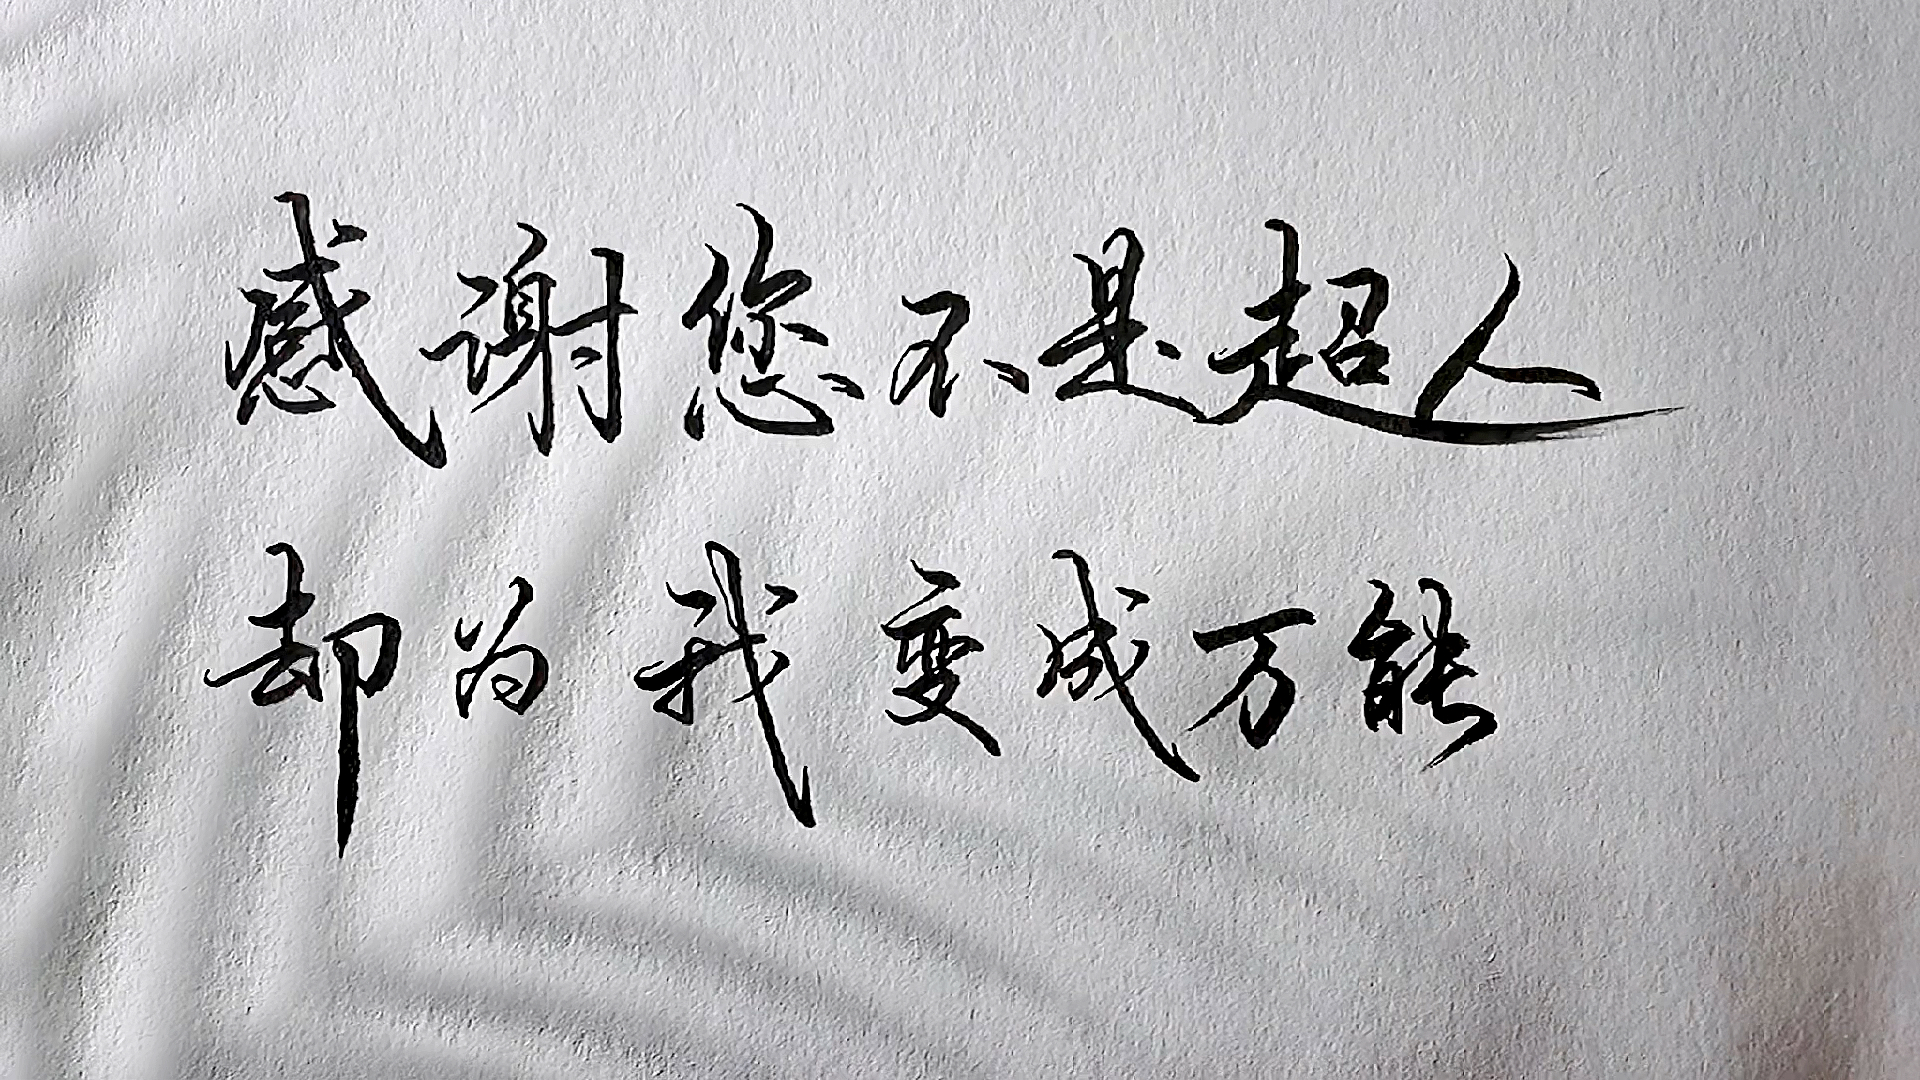 感谢您不是超人
却为我变成万能